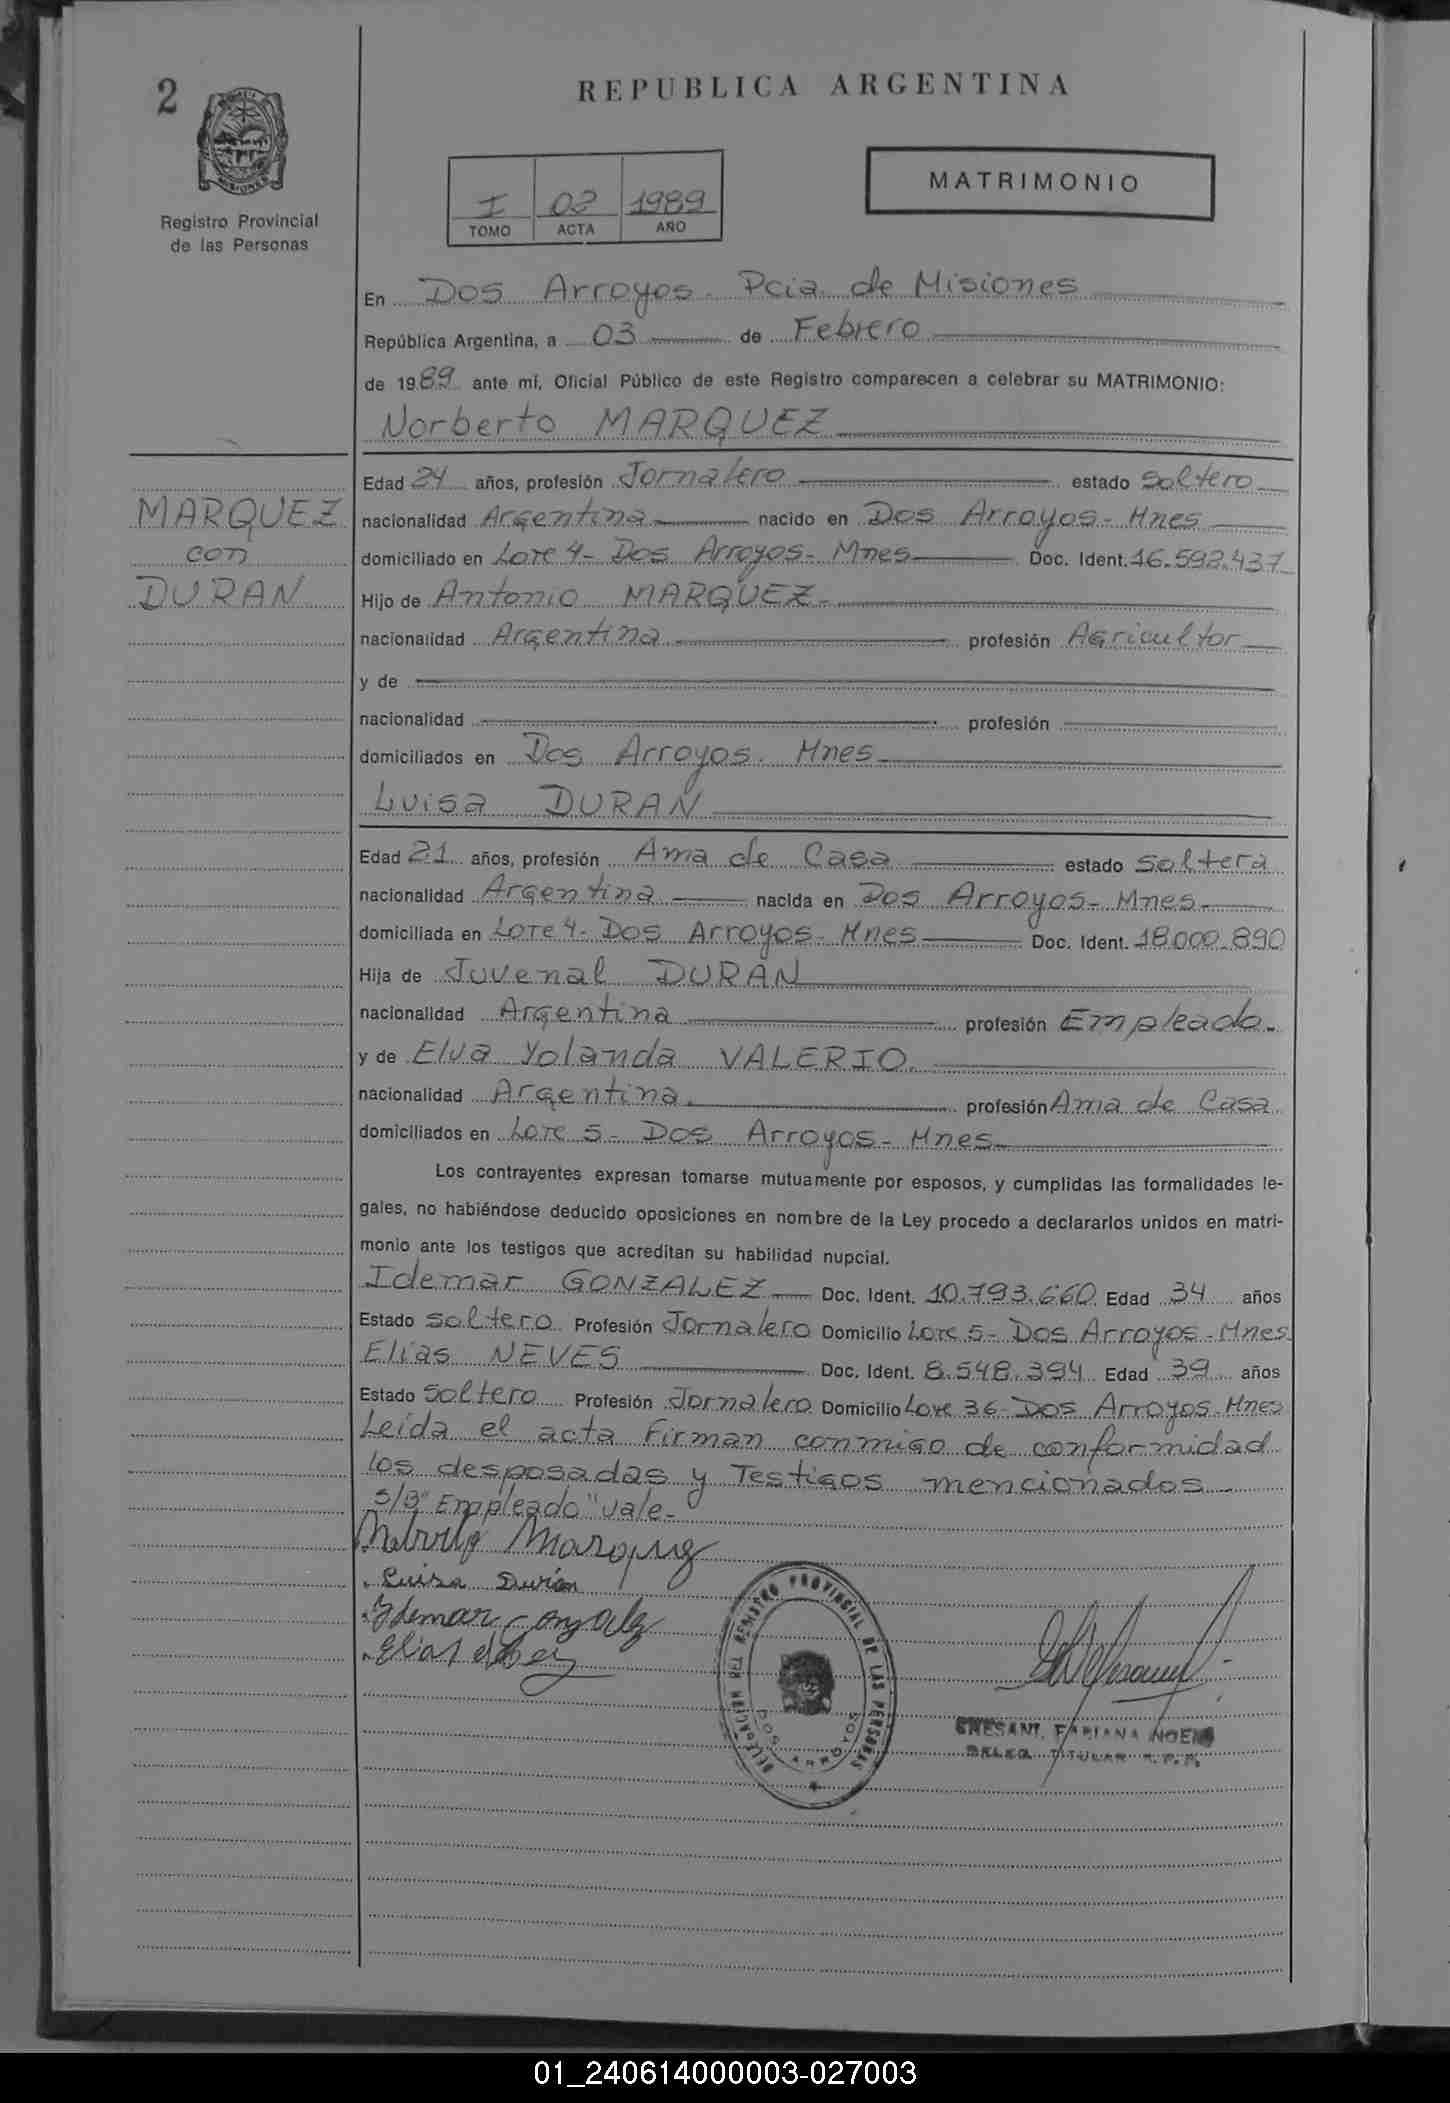 2
REPUBLICA ARGENTINA
MATRIMONIO
Registro Provincial
de las Personas
I 02 1989
TOMO ACTA AÑO
En Dos Arroyos - Pcia de Misiones
República Argentina, a 03 de Febrero
de 1989 ante mí, Oficial Público de este Registro comparecen a celebrar su MATRIMONIO:
Norberto MARQUEZ
MARQUEZ
con
DURAN
Edad 24 años, profesión Jornalero estado Soltero
nacionalidad Argentina nacido en Dos Arroyos - Mnes
domiciliado en Lote 4 - Dos Arroyos - Mnes Doc. Ident. 16.592.437
Hijo de Antonio MARQUEZ -
nacionalidad Argentina profesión Agricultor
y de
nacionalidad profesión
domiciliados en Dos Arroyos. Mnes
Luisa DURAN
Edad 21 años, profesión Ama de Casa estado Soltera
nacionalidad Argentina nacida en Dos Arroyos - Mnes
domiciliada en Lote 4 - Dos Arroyos - Mnes Doc. Ident. 18.000.890
Hija de Juvenal DURAN
nacionalidad Argentina profesión Empleado -
y de Elva Yolanda VALERIO.
nacionalidad Argentina. profesión Ama de Casa
domiciliados en Lote 5 - Dos Arroyos - Mnes
Los contrayentes expresan tomarse mutuamente por esposos, y cumplidas las formalidades le-
gales, no habiéndose deducido oposiciones en nombre de la Ley procedo a declararlos unidos en matri-
monio ante los testigos que acreditan su habilidad nupcial.
Idemar GONZALEZ Doc. Ident. 10.793.660 Edad 34 años
Estado Soltero Profesión Jornalero Domicilio Lote 5 - Dos Arroyos - Mnes
Elias NEVES Doc. Ident. 8.548.394 Edad 39 años
Estado Soltero Profesión Jornalero Domicilio Lote 36 - Dos Arroyos - Mnes
Leída el acta Firman conmigo de conformidad
los desposadas y Testigos mencionados
S/B "Empleado" vale -
Luisa Durán
Idemar Gonzalez
Elias
DELEGACION DEL REGISTRO PROVINCIAL DE LAS PERSONAS
DOS ARROYOS
FABIANA NOEMI
DELEG. TITULAR R. P. P.
01_240614000003-027003